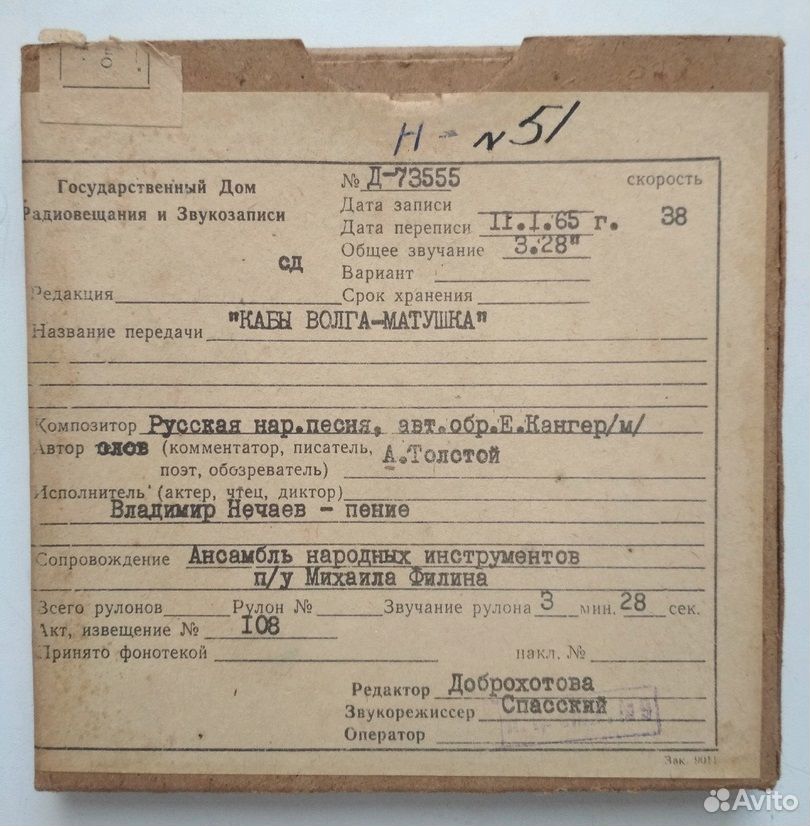 Н - N 51
Государственный Дом
Радиовещания и Звукозаписи
№ Д-73555 скорость
Дата записи
Дата переписи II.I.65 г. 38
Общее звучание 3.28"
сд
Вариант
Редакция
Срок хранения
Название передачи "КАБЫ ВОЛГА-МАТУШКА"
Композитор Русская нар.песня, авт.обр.Е.Кангер/м/
Автор слов (комментатор, писатель,
поэт, обозреватель) А.Толстой
Исполнитель (актер, чтец, диктор)
Владимир Нечаев - пение
Сопровождение Ансамбль народных инструментов
п/у Михаила Филина
Всего рулонов Рулон № Звучание рулона 3 мин. 28 сек.
Акт, извещение № I08
Принято фонотекой накл. №
Редактор Доброхотова
Звукорежиссер Спасский
Оператор
Зак. 9011
Avito